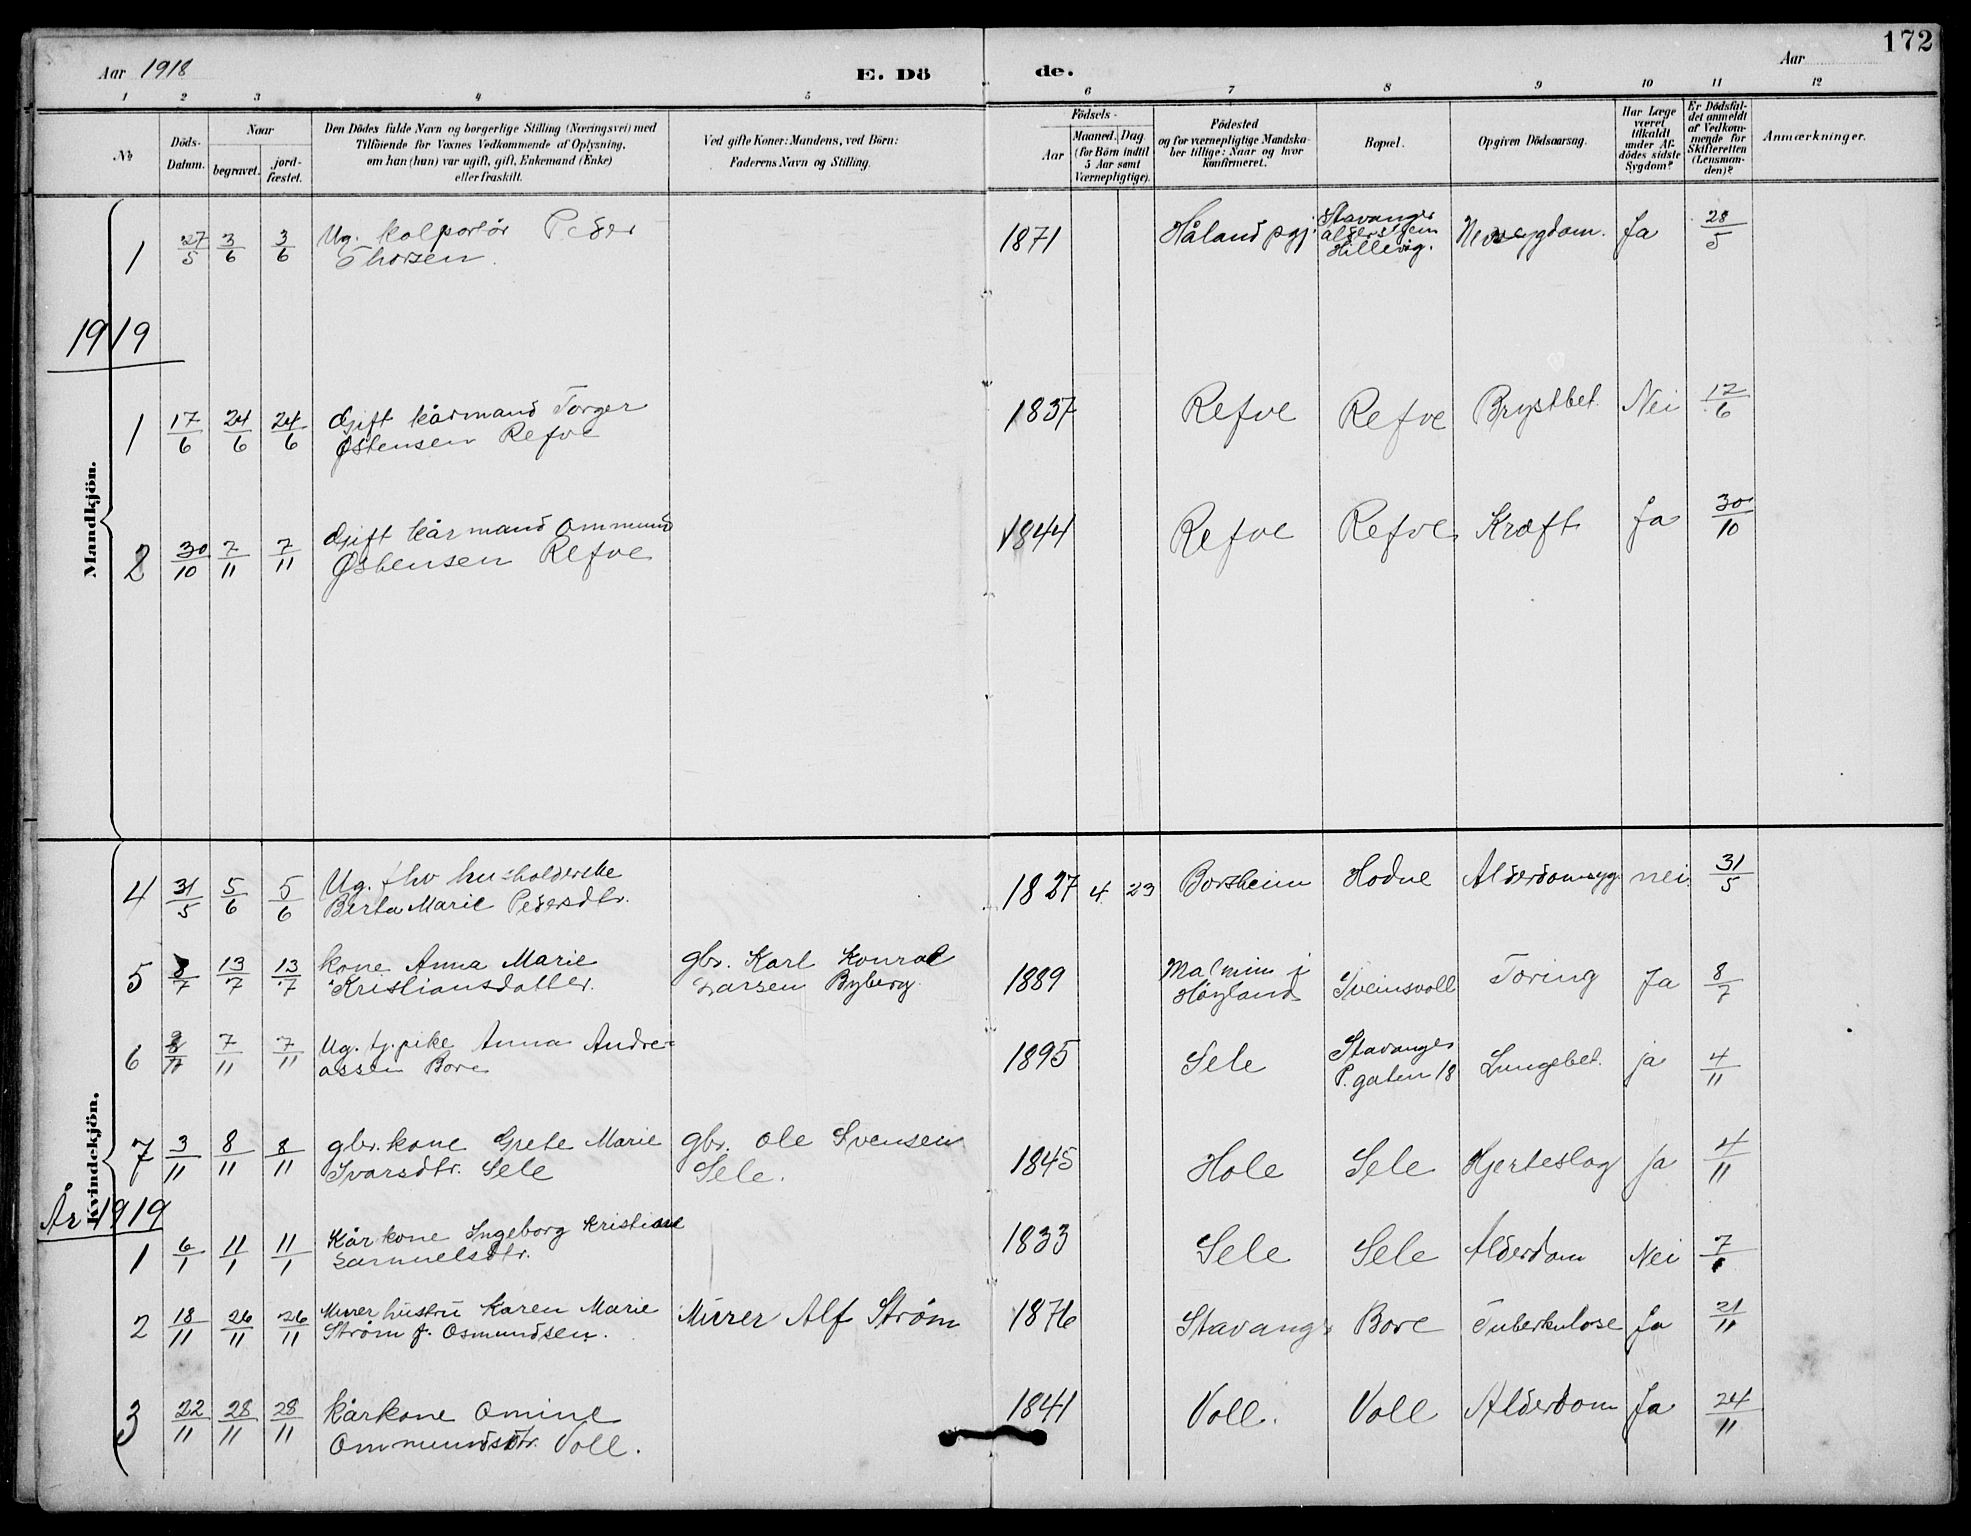 172
Aar 1918 E. Dö de. Aar
1 2 3 4 5 6 7 8 9 10 11 12
No
Döds-Datum.
Naar
begravet.
jord-fæstet.
Den Dödes fulde Navn og borgerlige Stilling (Næringsvei) med
Tilföiende for Voxnes Vedkommende af Oplysning,
om han (hun) var ugift, gift, Enkemand (Enke)
eller fraskilt.
Ved gifte Koner: Mandens, ved Börn:
Faderens Navn og Stilling.
Födsels-
Aar
Maaned. Dag.
(for Börn indtil
5 Aar samt
Værnepligtige).
Födested
og for værnepligtige Mandska-
ber tillige: Naar og hvor
konfirmeret.
Bopæl.
Opgiven Dödsaarsag.
Har Læge
været
tilkaldt
under Af-
dödes sidste
Sygdom?
Er Dödsfal-
det anmeldt
af Vedkom-
mende for
Skifteretten
(Lensman-
den)?
Anmærkninger.
Mandkjön.
1 27/5 3/6 3/6 Ug. kolportör Peder
Thorsen. 1871 Håland pgj. Stavanger
aldershjem
Hillevåg. Ja 28/5
1919
1 17/6 24/6 24/6 Gift kårmand Torger
Østensen Refve 1837 Refve Refve Brystbet. Nei 17/6
2 30/10 7/11 7/11 Gift kårmand Ommund
Østensen Refve 1844 Refve Refve Kræft Ja 30/10
Kvindekjön.
4 31/5 5/6 5/6 Ug. fhv husholderske
Berta Marie Pedersdtr. 1827 4 23 Borsheim Hodne Alderdomsyg. nei 31/5
5 8/7 13/7 13/7 kone Anna Marie
Kristiansdatter. gbr. Karl Konrad
Larsen Byberg. 1889 Malmim i
Høyland Sveinsvoll Tæring Ja 8/7
6 7/11 7/11 Ug. tj.pike Anna Andre=
assen Bore 1895 Sele Stavanger
P.gaten 18 Lungebet. ja 4/11
7 3/11 8/11 8/11 gbr. kone Grete Marie
Ivarsdtr. Sele gbr. Ole Svensen
Sele. 1845 Hole Sele Hjerteslag Ja 4/11
År 1919
1 6/1 11/1 11/1 Kårkone Ingeborg Kristiane
Samuelsdtr. 1833 Sele Sele Alderdom Nei 7/1
2 18/11 26/11 26/11 Murer hustru Karen Marie
Strøm f. Osmundsen. Murer Alf Strøm 1876 Stavanger Bore Tuberkulose Ja 21/11
3 22/11 28/11 28/11 kårkone Omine
Ommundsdtr. Voll. 1841 Voll. Voll Alderdom Ja 24/11